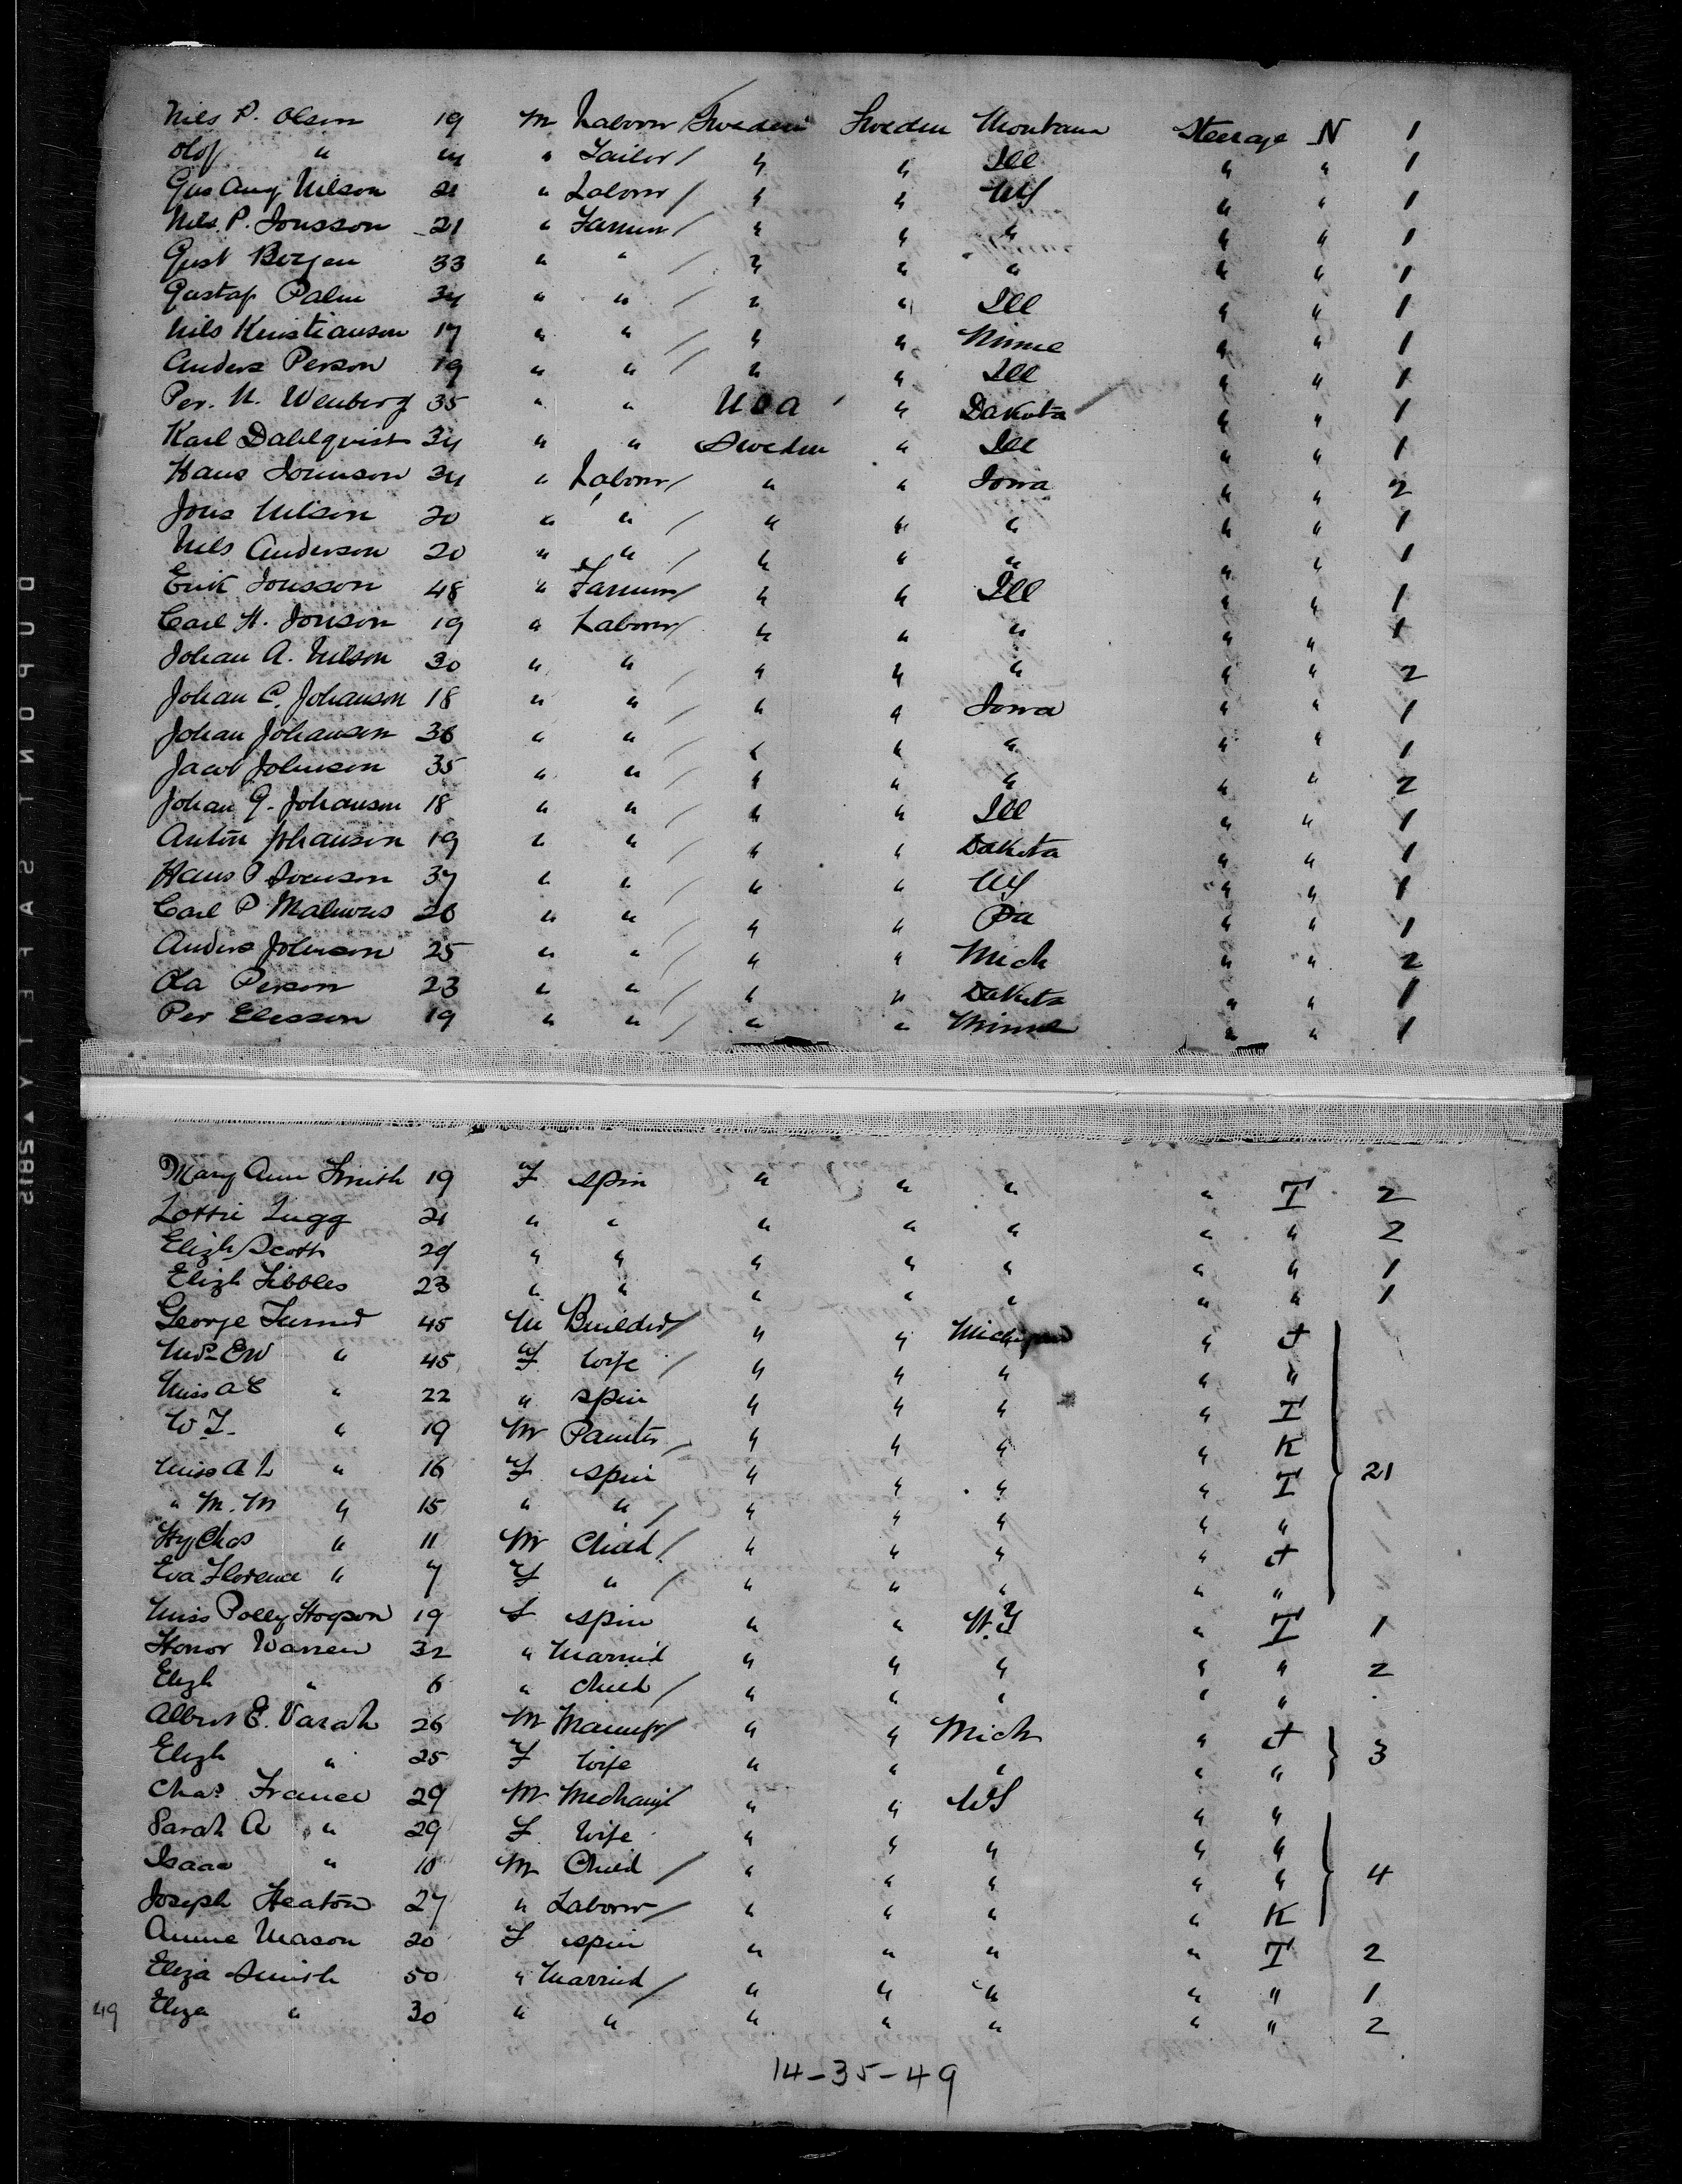 Nils P. Olson 19 M Laborer / Sweden Sweden Montana Steerage N 1
Olof " " Tailor / " " Ill " " 1
Gus Aug Nilson 21 " Laborer / " " " " 1
Nils P. Jonsson 21 " Farmer / " " " " " 1
Gust Bergen 33 " " / " " " " " 1
Gustaf Palm 34 " " / " " Ill " " 1
Nils Kristianson 17 " " / " " Minne " " 1
Anders Person 19 " " / " " Ill " " 1
Per. N. Wenberg 35 " " USA " Dakota / " " 1
Karl Dahlqvist 34 " " Sweden " Ill " " 1
Hans Jounson 34 " Laborer / " " Iowa " " 2
Jons Nilson 20 " " / " " " " " 1
Nils Anderson 20 " " / " " " " " 1
Erik Jonsson 48 " Farmer / " " Ill " " 1
Carl H. Jonson 19 " Laborer / " " " " " 1
Johan A. Nilson 30 " " / " " " " " 2
Johan C. Johanson 18 " " / " " Iowa " " 1
Johan Johanson 36 " " / " " " " " 1
Jacob Johnson 35 " " / " " " " " 2
Johan G. Johanson 18 " " / " " Ill " " 1
Anton Johanson 19 " " / " " Dakota " " 1
Hans P Svenson 37 " " / " " " " 1
Carl P 26 " " / " " Pa " " 1
Anders Johnson 25 " " / " " Mich " " 2
Ola Person 23 " " / " " Dakota " " 1
Per Elisson 19 " " / " " Minne " " 1
Mary Ann Smith 19 F spin " " " " I 2
Lottie Lugg 21 " " " " " " " 2
Elizh Scott 29 " " " " " " " 1
Elizh Tibbles 23 " " " " " " " 1
George Turner 45 M Builder / " " Michigan "
Mrs EW " 45 F Wife / " " " " "
Miss A E " 22 " spin " " " " I
W T. " 19 M Painter / " " " " K
Miss A L " 16 F spin " " " " I 21
" M. M " 15 " " / " " " " "
Hy Chas " 11 M Child / " " " "
Eva Florence " 7 F " / " " " " "
Miss Polly Hogson 19 F spin " " N.Y " I 1
Honor Warren 32 " Married " " " " " 2
Elizh " 6 " child / " " " " "
Albert E. Varah 26 M / " " Mich "
Elizh " 25 F Wife " " " " " 3
Chas France 29 M Mechanic / " " " "
Sarah A " 29 F Wife " " " " "
Isaac " 10 M Child / " " " " " 4
Joseph Heaton 27 " Laborer / " " " " K
Annie Mason 20 F spin " " " " I 2
Eliza Smith 50 " Married / " " " " " 1
49 Eliza " 30 " " " " " " " 2
14-35-49
DUPONT SAFETY 2812